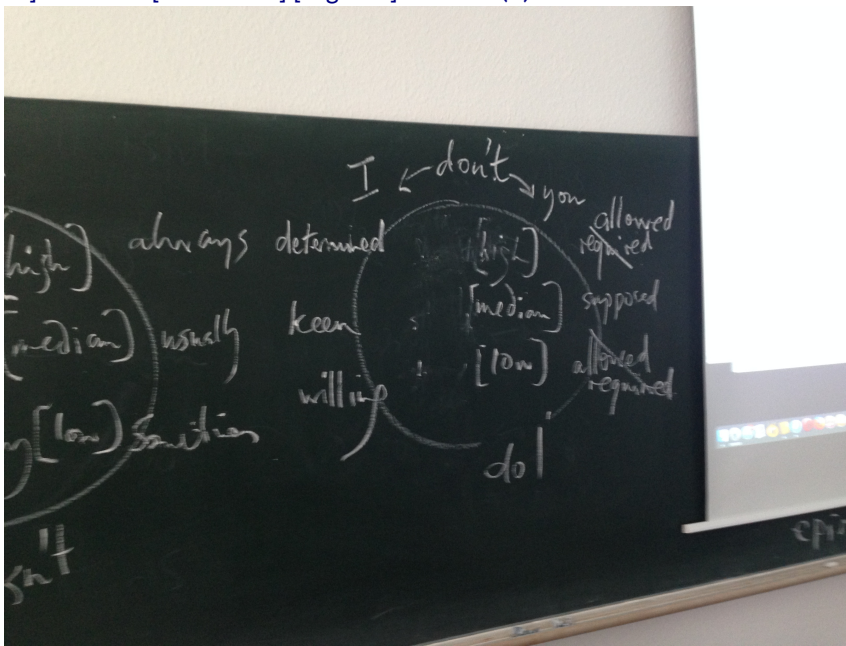 I don't you
high] always determined [high] allowed required
[median] usually keen [median] supposed
[low] sometimes willing [low] allowed required
do!
sn't